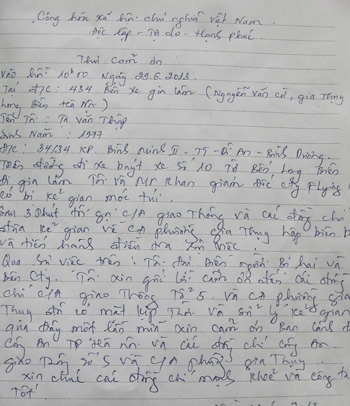 Cộng hòa xã hội chủ nghĩa Việt Nam
Độc lập - Tự do - Hạnh phúc
Thư Cảm ơn
vào hồi 10h00 Ngày 22.6.2013.
Tại đ/c: 434 Bến xe gia lâm (Nguyễn văn cừ, gia Thụy
Long Biên Hà Nội)
Tên Tôi: Tạ Văn Thập
Sinh Năm: 1977
Đ/C: 34/34 KP. Bình Minh II - TT - Dĩ An - Bình Dương.
Trên đường đi xe buýt xe số 10 Từ
đi gia lâm Tôi và Mr Khan giám đốc cty
có bị kẻ gian móc túi.
Sau 3 Phút thì gọi C/A giao Thông và các đồng chí
đưa kẻ gian về CA phường gia Thụy lập biên b
và tiến hành điều tra
Qua sự việc trên: Tôi đại Diện người Bị hại và
bên Cty. Tôi xin gửi lời cảm ơn đến các đồng
chí C/A giao Thông Tổ 5. Và CA phường gia
Thụy đã có mặt kịp Thời và sử lý kẻ gian
qua đây một lần nữa xin cảm ơn Ban lãnh đ
Công An TP Hà nội và các đồng chí công An
giao Thông số 5 và C/A phường gia Thụy.
xin chúc các đồng chí mạnh khỏe và công tá
Tốt